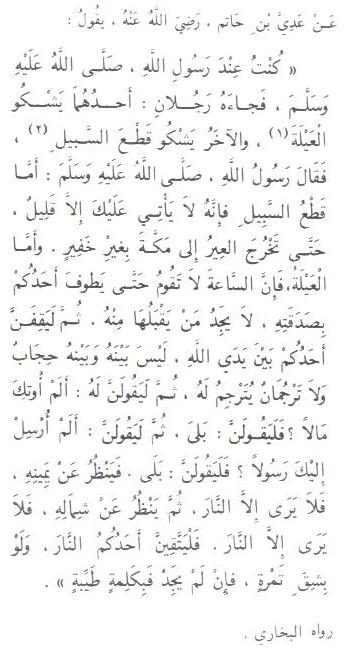 عَنْ عَدِيِّ بْنِ حَاتِمٍ ، رَضِيَ اللَّهُ عَنْهُ ، يقُولُ :
« كُنْتُ عِنْدَ رَسُولِ اللَّهِ ، صَلَّى اللَّهُ عَلَيْهِ
وَسَلَّمَ ، فَجَاءَهُ رَجُلَانِ : أَحَدُهُمَا يَشْكُو
الْعَيْلَةَ (١) ، والآخَرُ يَشْكُو قَطْعَ السَّبِيلِ (٢) ،
فَقَالَ رَسُولُ اللَّهِ ، صَلَّى اللَّهُ عَلَيْهِ وَسَلَّمَ : أَمَّا
قَطْعُ السَّبِيلِ فإنَّهُ لَا يَأْتِي عَلَيْكَ إلَّا قَلِيلٌ ،
حَتَّى تَخْرُجَ العِيرُ إلى مَكَّةَ بِغَيْرِ خَفِيرٍ . وأَمَّا
الْعَيْلَةُ،فَإنَّ السَّاعَةَ لَا تَقُومُ حَتَّى يَطوفَ أَحَدُكُمْ
بِصَدَقَتِهِ ، لَا يَجِدُ مَنْ يَقْبَلُهَا مِنْهُ . ثُمَّ لَيَقِفَنَّ
أَحَدُكُمْ بَيْنَ يَدَي اللَّهِ ، لَيْسَ بَيْنَهُ وَبَيْنَهُ حِجَابٌ
وَلَا تَرْجُمَانٌ يُتَرْجِمُ لَهُ ، ثُمَّ لَيَقُولَنَّ لَهُ : أَلَمْ أُوتِكَ
مَالاً ؟ فَلَيَقُولَنَّ : بَلَى ، ثُمَّ لَيَقُولَنَّ : أَلَمْ أُرْسِلْ
إِلَيْكَ رَسُولاً ؟ فَلَيَقُولَنَّ : بَلَى . فَيَنْظُرُ عَنْ يَمِينِهِ ،
فَلَا يَرَى إلَّا النَّارَ ، ثُمَّ يَنْظُرُ عَنْ شِمَالِهِ ، فَلَا
يَرَى إلَّا النَّارَ . فَلْيَتَّقِيَنَّ أَحَدُكُمُ النَّارَ ، وَلَوْ
بِشِقِّ تَمْرَةٍ ، فإنْ لَمْ يجِدْ فَبِكَلِمةٍ طَيِّبةٍ » .
رواه البخاري .